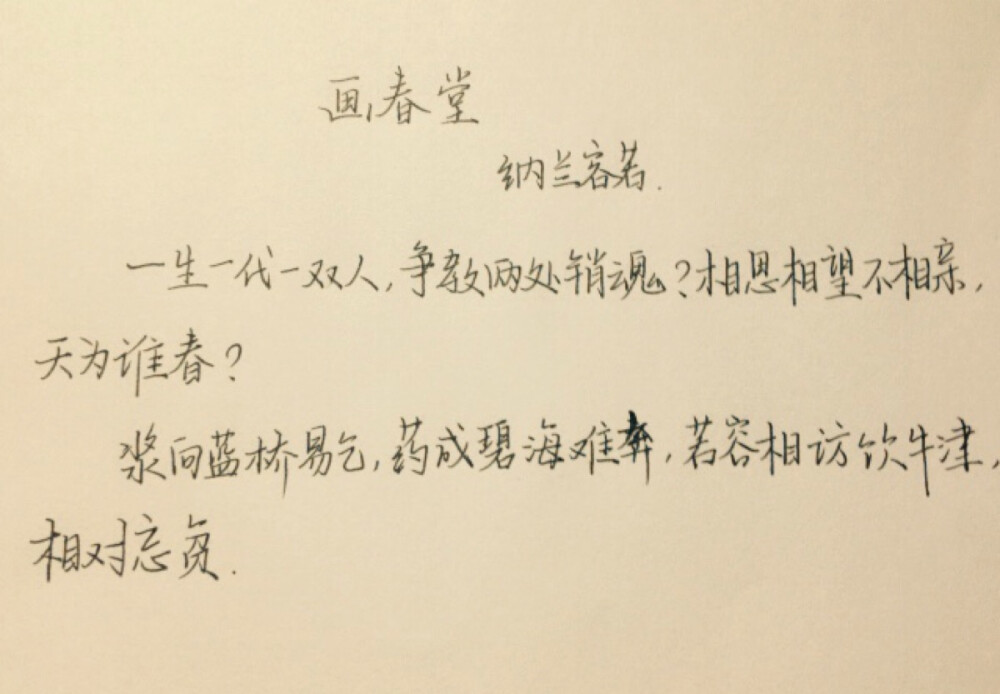 画春堂
纳兰容若.
一生一代一双人,争教两处销魂?相思相望不相亲,
天为谁春?
浆向蓝桥易乞,药成碧海难奔,若容相访饮牛津,
相对忘贫.